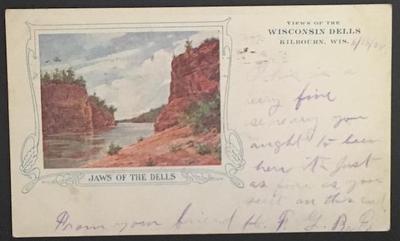 VIEWS OF THE
WISCONSIN DELLS
KILBOURN, WIS.
This is a
very fine
scenery you
ought to been
here it just
as fine as you
see it on this card
JAWS OF THE DELLS
From your friend H.